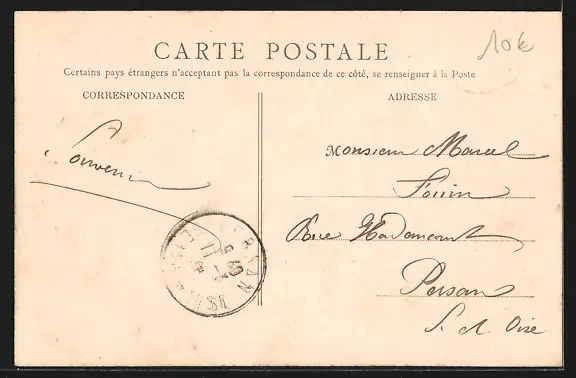 10k
CARTE POSTALE
Certains pays étrangers n'acceptant pas la correspondance de ce côté, se renseigner à la Poste
CORRESPONDANCE
ADRESSE
Souvenir
Monsieur Marcel
Rue
Persan
S. et Oise
PERSAN